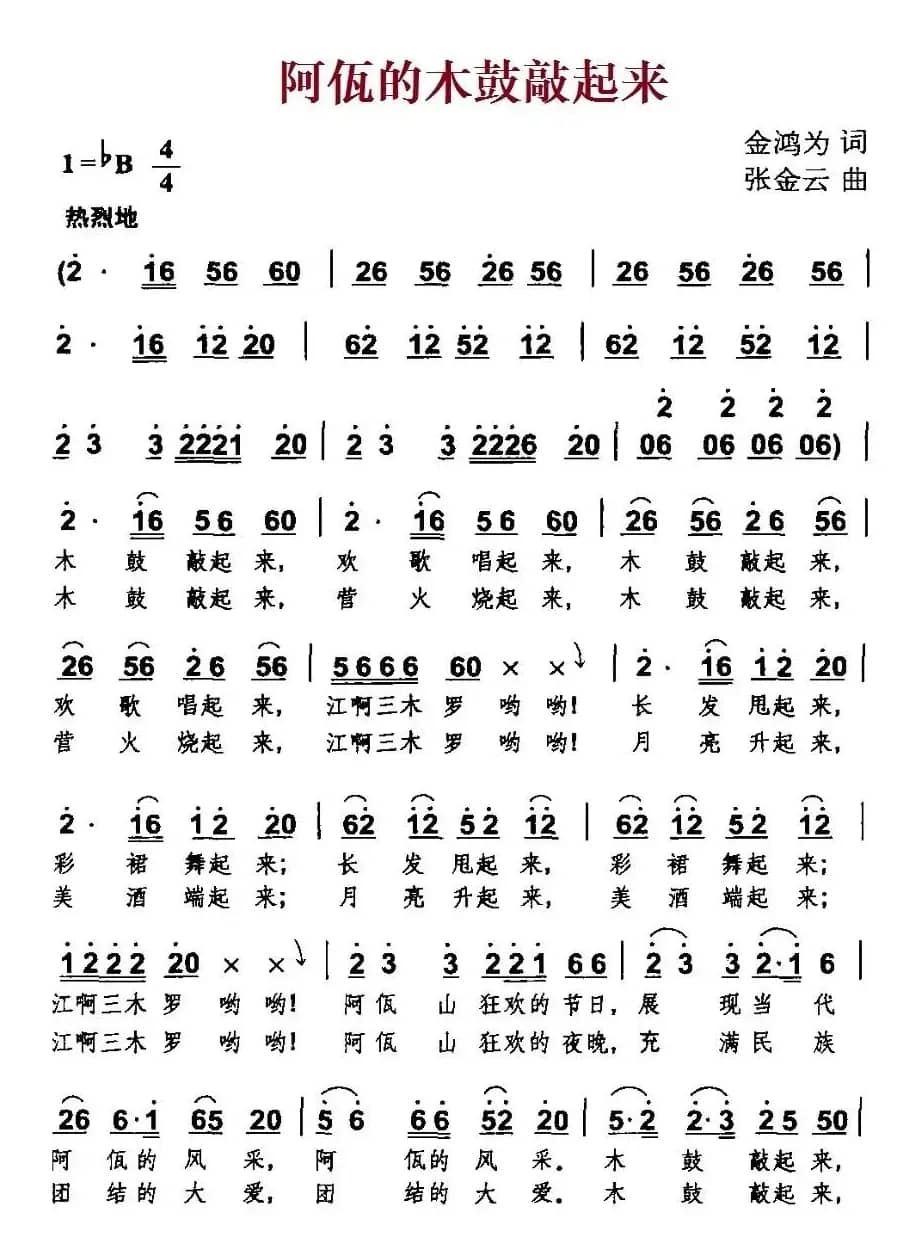 阿佤的木鼓敲起来
金鸿为 词
1=♭B 4/4
张金云 曲
热烈地
(2· 16 56 60 | 26 56 26 56 | 26 56 26 56 |
2· 16 12 20 | 62 12 52 12 | 62 12 52 12 |
2 2 2 2
2 3 3 2221 20 | 2 3 3 2226 20 | 06 06 06 06) |
2· 16 56 60 | 2· 16 56 60 | 26 56 26 56 |
木 鼓 敲起 来, 欢 歌 唱起 来, 木 鼓 敲起 来,
木 鼓 敲起 来, 营 火 烧起 来, 木 鼓 敲起 来,
26 56 26 56 | 5666 60 × × | 2· 16 12 20 |
欢 歌 唱起 来, 江啊三木 罗 哟 哟! 长 发 甩起 来,
营 火 烧起 来, 江啊三木 罗 哟 哟! 月 亮 升起 来,
2· 16 12 20 | 62 12 52 12 | 62 12 52 12 |
彩 裙 舞起 来; 长 发 甩起 来, 彩 裙 舞起 来;
美 酒 端起 来; 月 亮 升起 来, 美 酒 端起 来;
1222 20 × × | 2 3 3 221 66 | 2 3 3 2·1 6 |
江啊三木 罗 哟 哟! 阿 佤 山 狂欢的 节日, 展 现当 代
江啊三木 罗 哟 哟! 阿 佤 山 狂欢的 夜晚, 充 满民 族
26 6·1 65 20 | 5 6 66 52 20 | 5·2 2·3 25 50 |
阿 佤的 风 采, 阿 佤的 风 采。 木 鼓 敲起 来,
团 结的 大 爱, 团 结的 大 爱。 木 鼓 敲起 来,